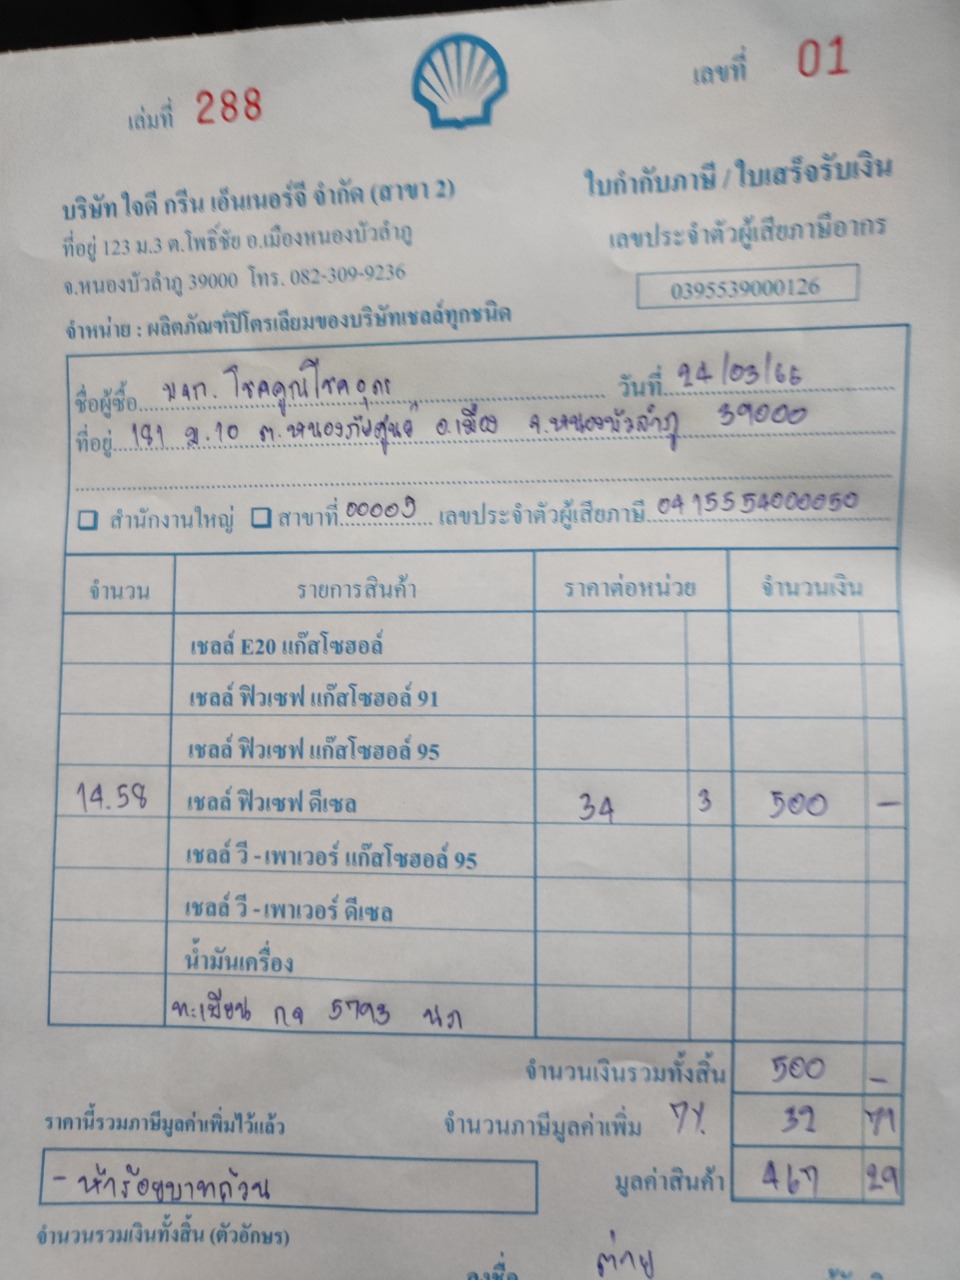 เล่มที่ 288
เลขที่ 01
บริษัท ใจดี กรีน เอ็นเนอร์จี จำกัด (สาขา 2)
ใบกำกับภาษี / ใบเสร็จรับเงิน
ที่อยู่ 123 ม.3 ต.โพธิ์ชัย อ.เมืองหนองบัวลำภู
เลขประจำตัวผู้เสียภาษีอากร
จ.หนองบัวลำภู 39000 โทร. 082-309-9236
0395539000126
จำหน่าย : ผลิตภัณฑ์ปิโตรเลียมของบริษัทเชลล์ทุกชนิด
ชื่อผู้ซื้อ บจก. โชคคูณโชคอุดร วันที่ 24/03/66
ที่อยู่ 181 ม.10 ต.หนองภัยศูนย์ อ.เมือง จ.หนองบัวลำภู 39000
สำนักงานใหญ่ สาขาที่ เลขประจำตัวผู้เสียภาษี 0415554000050
จำนวน รายการสินค้า ราคาต่อหน่วย จำนวนเงิน
เชลล์ E20 แก๊สโซฮอล์
เชลล์ ฟิวเซฟ แก๊สโซฮอล์ 91
เชลล์ ฟิวเซฟ แก๊สโซฮอล์ 95
14.58 เชลล์ ฟิวเซฟ ดีเซล 34 3 500 -
เชลล์ วี - เพาเวอร์ แก๊สโซฮอล์ 95
เชลล์ วี - เพาเวอร์ ดีเซล
น้ำมันเครื่อง
ทะเบียน กจ 5793 นภ
จำนวนเงินรวมทั้งสิ้น 500 -
ราคานี้รวมภาษีมูลค่าเพิ่มไว้แล้ว จำนวนภาษีมูลค่าเพิ่ม 7% 32 71
- ห้าร้อยบาทถ้วน มูลค่าสินค้า 467 29
จำนวนรวมเงินทั้งสิ้น (ตัวอักษร)
ลงชื่อ ต่าย